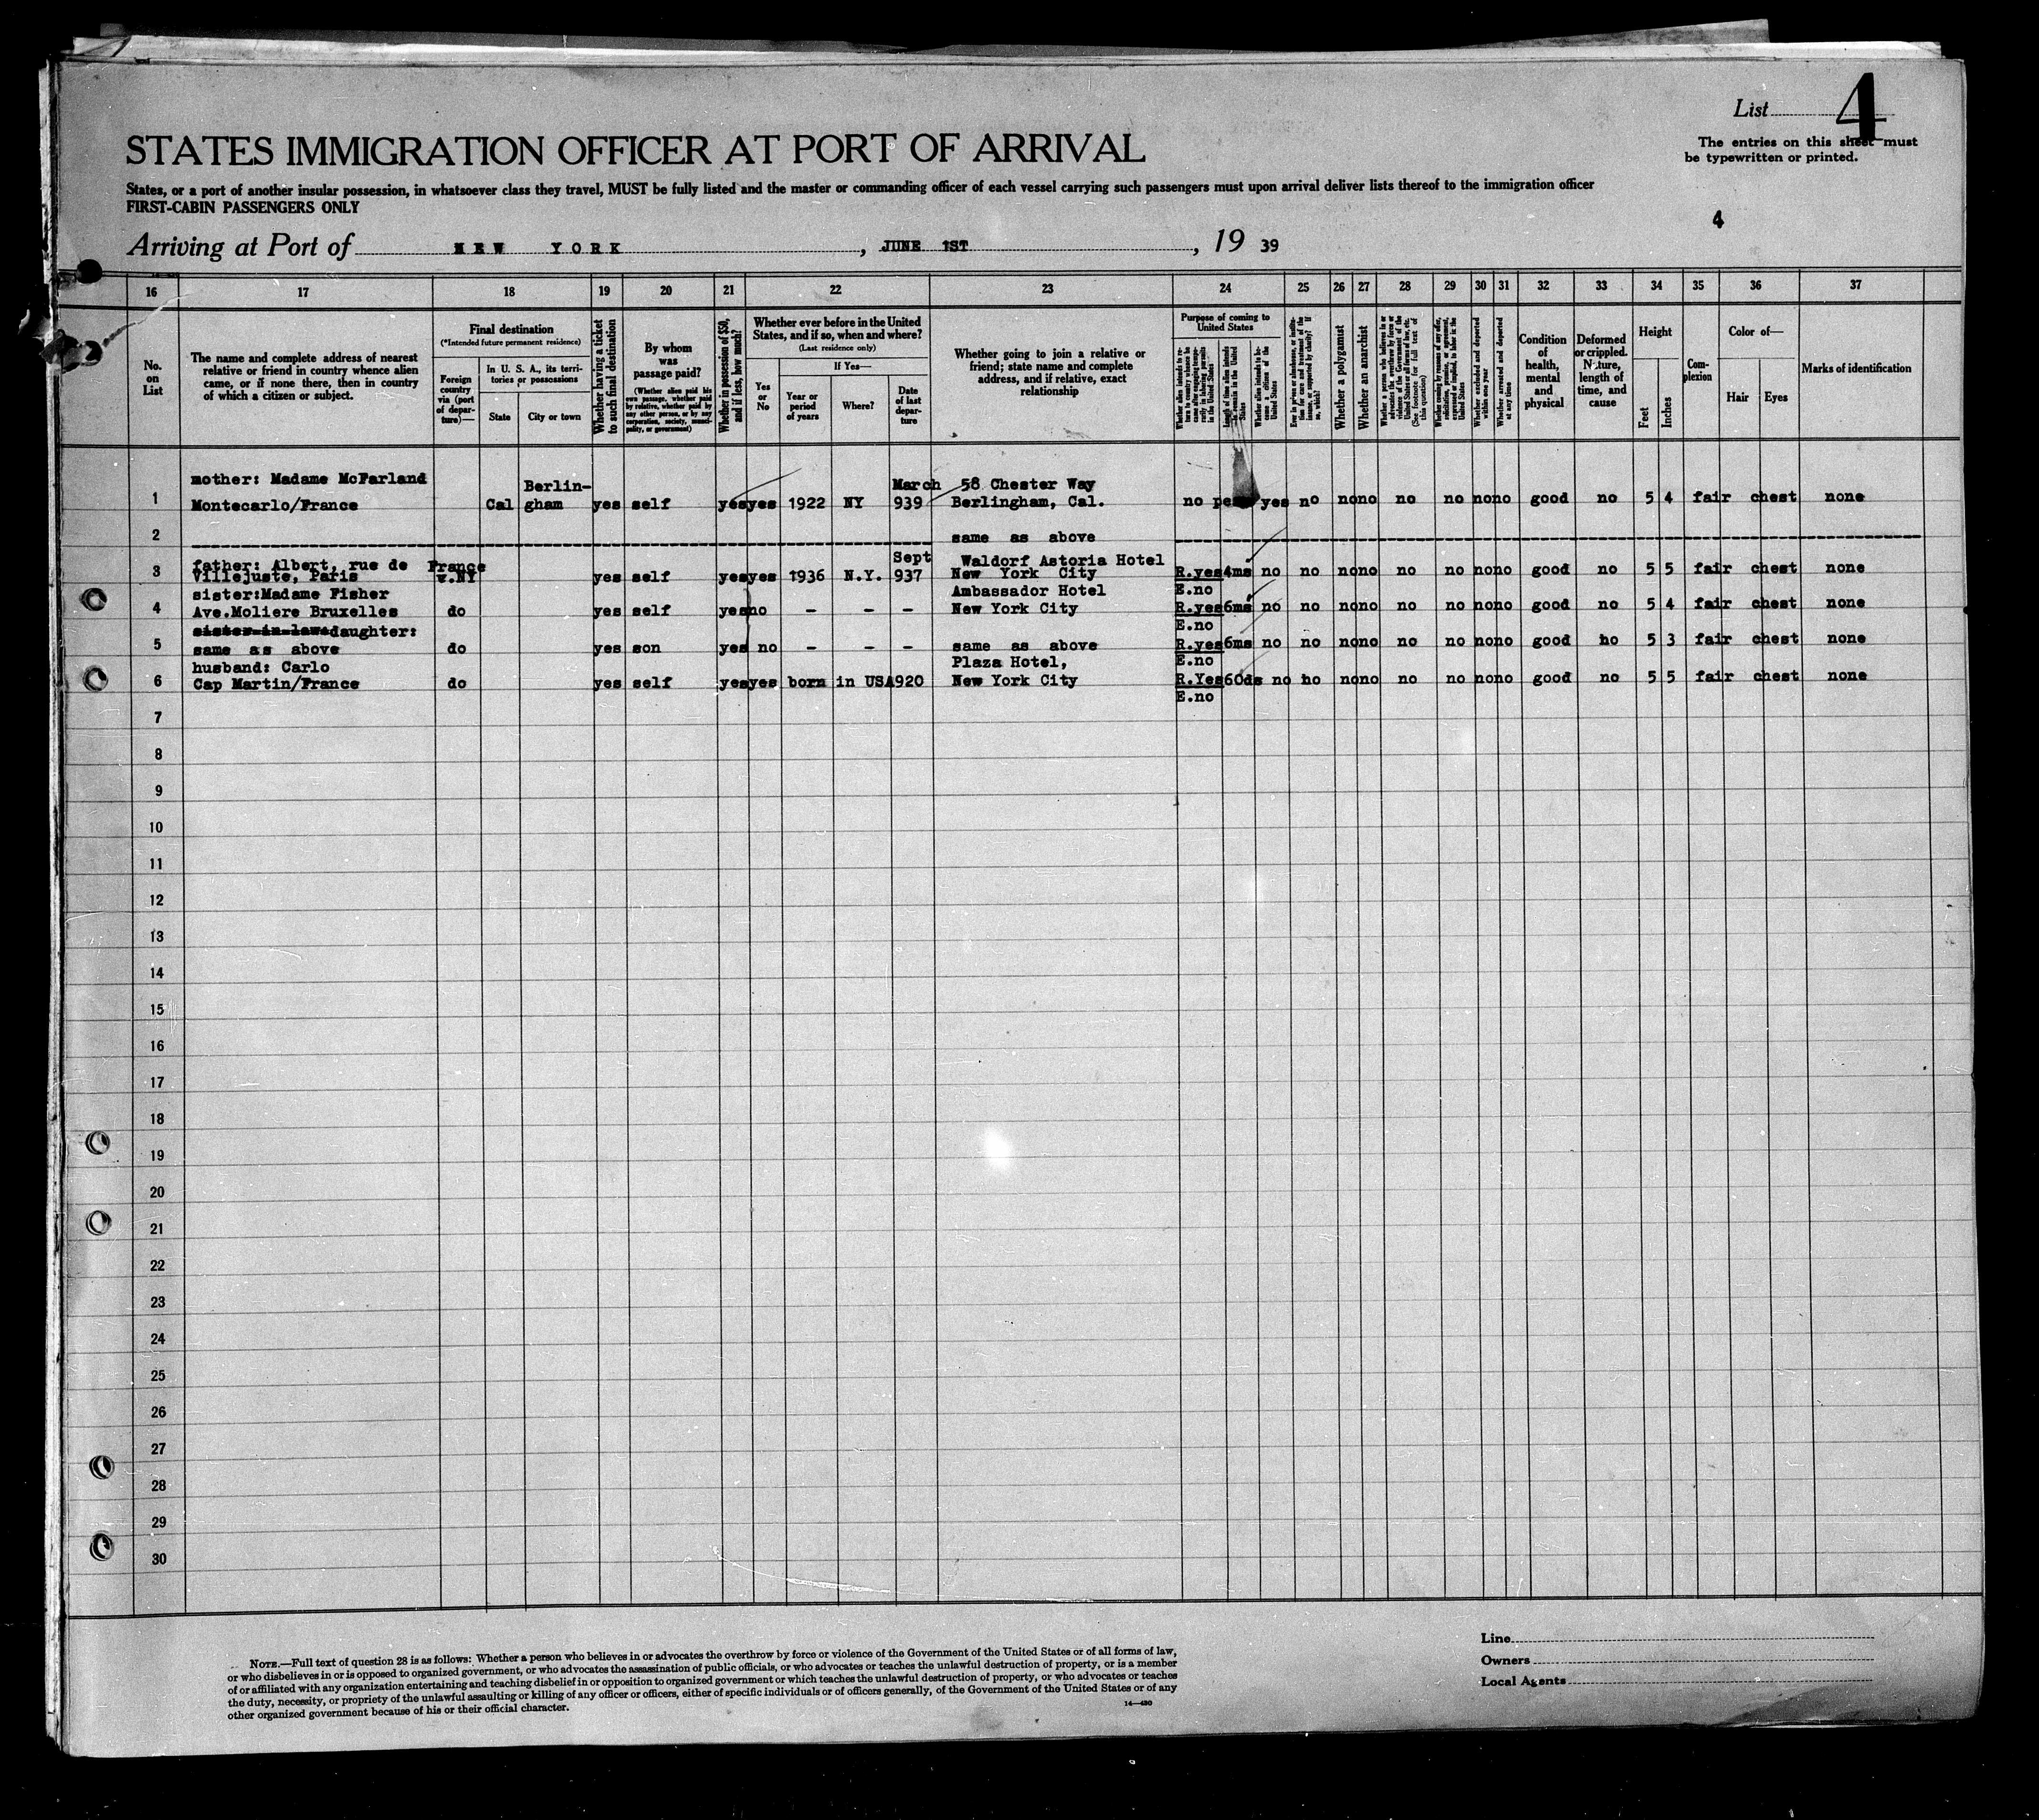 List 4
The entries on this sheet must
be typewritten or printed.
STATES IMMIGRATION OFFICER AT PORT OF ARRIVAL
States, or a port of another insular possession, in whatsoever class they travel, MUST be fully listed and the master or commanding officer of each vessel carrying such passengers must upon arrival deliver lists thereof to the immigration officer
FIRST-CABIN PASSENGERS ONLY
4
Arriving at Port of NEW YORK, JUNE 1ST, 19 39
16 17 18 19 20 21 22 23 24 25 26 27 28 29 30 31 32 33 34 35 36 37
No.
on
List
The name and complete address of nearest
relative or friend in country whence alien
came, or if none there, then in country
of which a citizen or subject.
Final destination
(*Intended future permanent residence)
Foreign
country
via (port
of depar-
ture)—
In U. S. A., its terri-
tories or possessions
State
City or town
Whether having a ticket
to such final destination
By whom
was
passage paid?
(Whether alien paid his
own passage, whether paid
by relative, whether paid by
any other person, or by any
corporation, society, munici-
pality, or government)
Whether in possession of $50,
and if less, how much?
Whether ever before in the United
States, and if so, when and where?
(Last residence only)
Yes
or
No
If Yes—
Year or
period
of years
Where?
Date
of last
depar-
ture
Whether going to join a relative or
friend; state name and complete
address, and if relative, exact
relationship
Purpose of coming to
United States
Whether alien intends to re-
turn to country whence he
came after engaging tempo-
rarily in laboring pursuits
in the United States
Length of time alien intends
to remain in the United
States
Whether alien intends to be-
come a citizen of the
United States
Ever in prison or almshouse, or institu-
tion for care and treatment of the
insane, or supported by charity? If
so, which?
Whether a polygamist
Whether an anarchist
Whether a person who believes in or
advocates the overthrow by force or
violence of the Government of the
United States or all forms of law, etc.
(See footnote for full text of
this question)
Whether coming by reason of any offer,
solicitation, promise, or agreement,
expressed or implied, to labor in the
United States
Whether excluded and deported
within one year
Whether arrested and deported
at any time
Condition
of
health,
mental
and
physical
Deformed
or crippled.
Nature,
length of
time, and
cause
Height
Feet
Inches
Com-
plexion
Color of—
Hair
Eyes
Marks of identification
mother: Madame McFarland
Berlin- March 58 Chester Way
1 Montecarlo/France Cal gham yes self yes yes 1922 NY 939 Berlingham, Cal. no yes no no no no no no no good no 5 4 fair chest none
2 same as above
father: Albert, rue de France Sept Waldorf Astoria Hotel
3 Villejuste, Paris v.NY yes self yes yes 1936 N.Y. 937 New York City R.yes 4ms no no no no no no no no good no 5 5 fair chest none
sister:Madame Fisher Ambassador Hotel E.no
4 Ave.Moliere Bruxelles do yes self yes no - - - New York City R.yes 6ms no no no no no no no no good no 5 4 fair chest none
sister-in-law daughter: E.no
5 same as above do yes son yes no - - - same as above R.yes 6ms no no no no no no no no good no 5 3 fair chest none
husband: Carlo Plaza Hotel, E.no
6 Cap Martin/France do yes self yes yes born in USA 920 New York City R.Yes 60ds no no no no no no no no good no 5 5 fair chest none
E.no
7
8
9
10
11
12
13
14
15
16
17
18
19
20
21
22
23
24
25
26
27
28
29
30
NOTE.—Full text of question 28 is as follows: Whether a person who believes in or advocates the overthrow by force or violence of the Government of the United States or of all forms of law,
or who disbelieves in or is opposed to organized government, or who advocates the assassination of public officials, or who advocates or teaches the unlawful destruction of property, or is a member
of or affiliated with any organization entertaining and teaching disbelief in or opposition to organized government or which teaches the unlawful destruction of property, or who advocates or teaches
the duty, necessity, or propriety of the unlawful assaulting or killing of any officer or officers, either of specific individuals or of officers generally, of the Government of the United States or of any
other organized government because of his or their official character.
14—430
Line
Owners
Local Agents